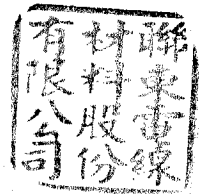 聯東電線
材料股份
有限公司